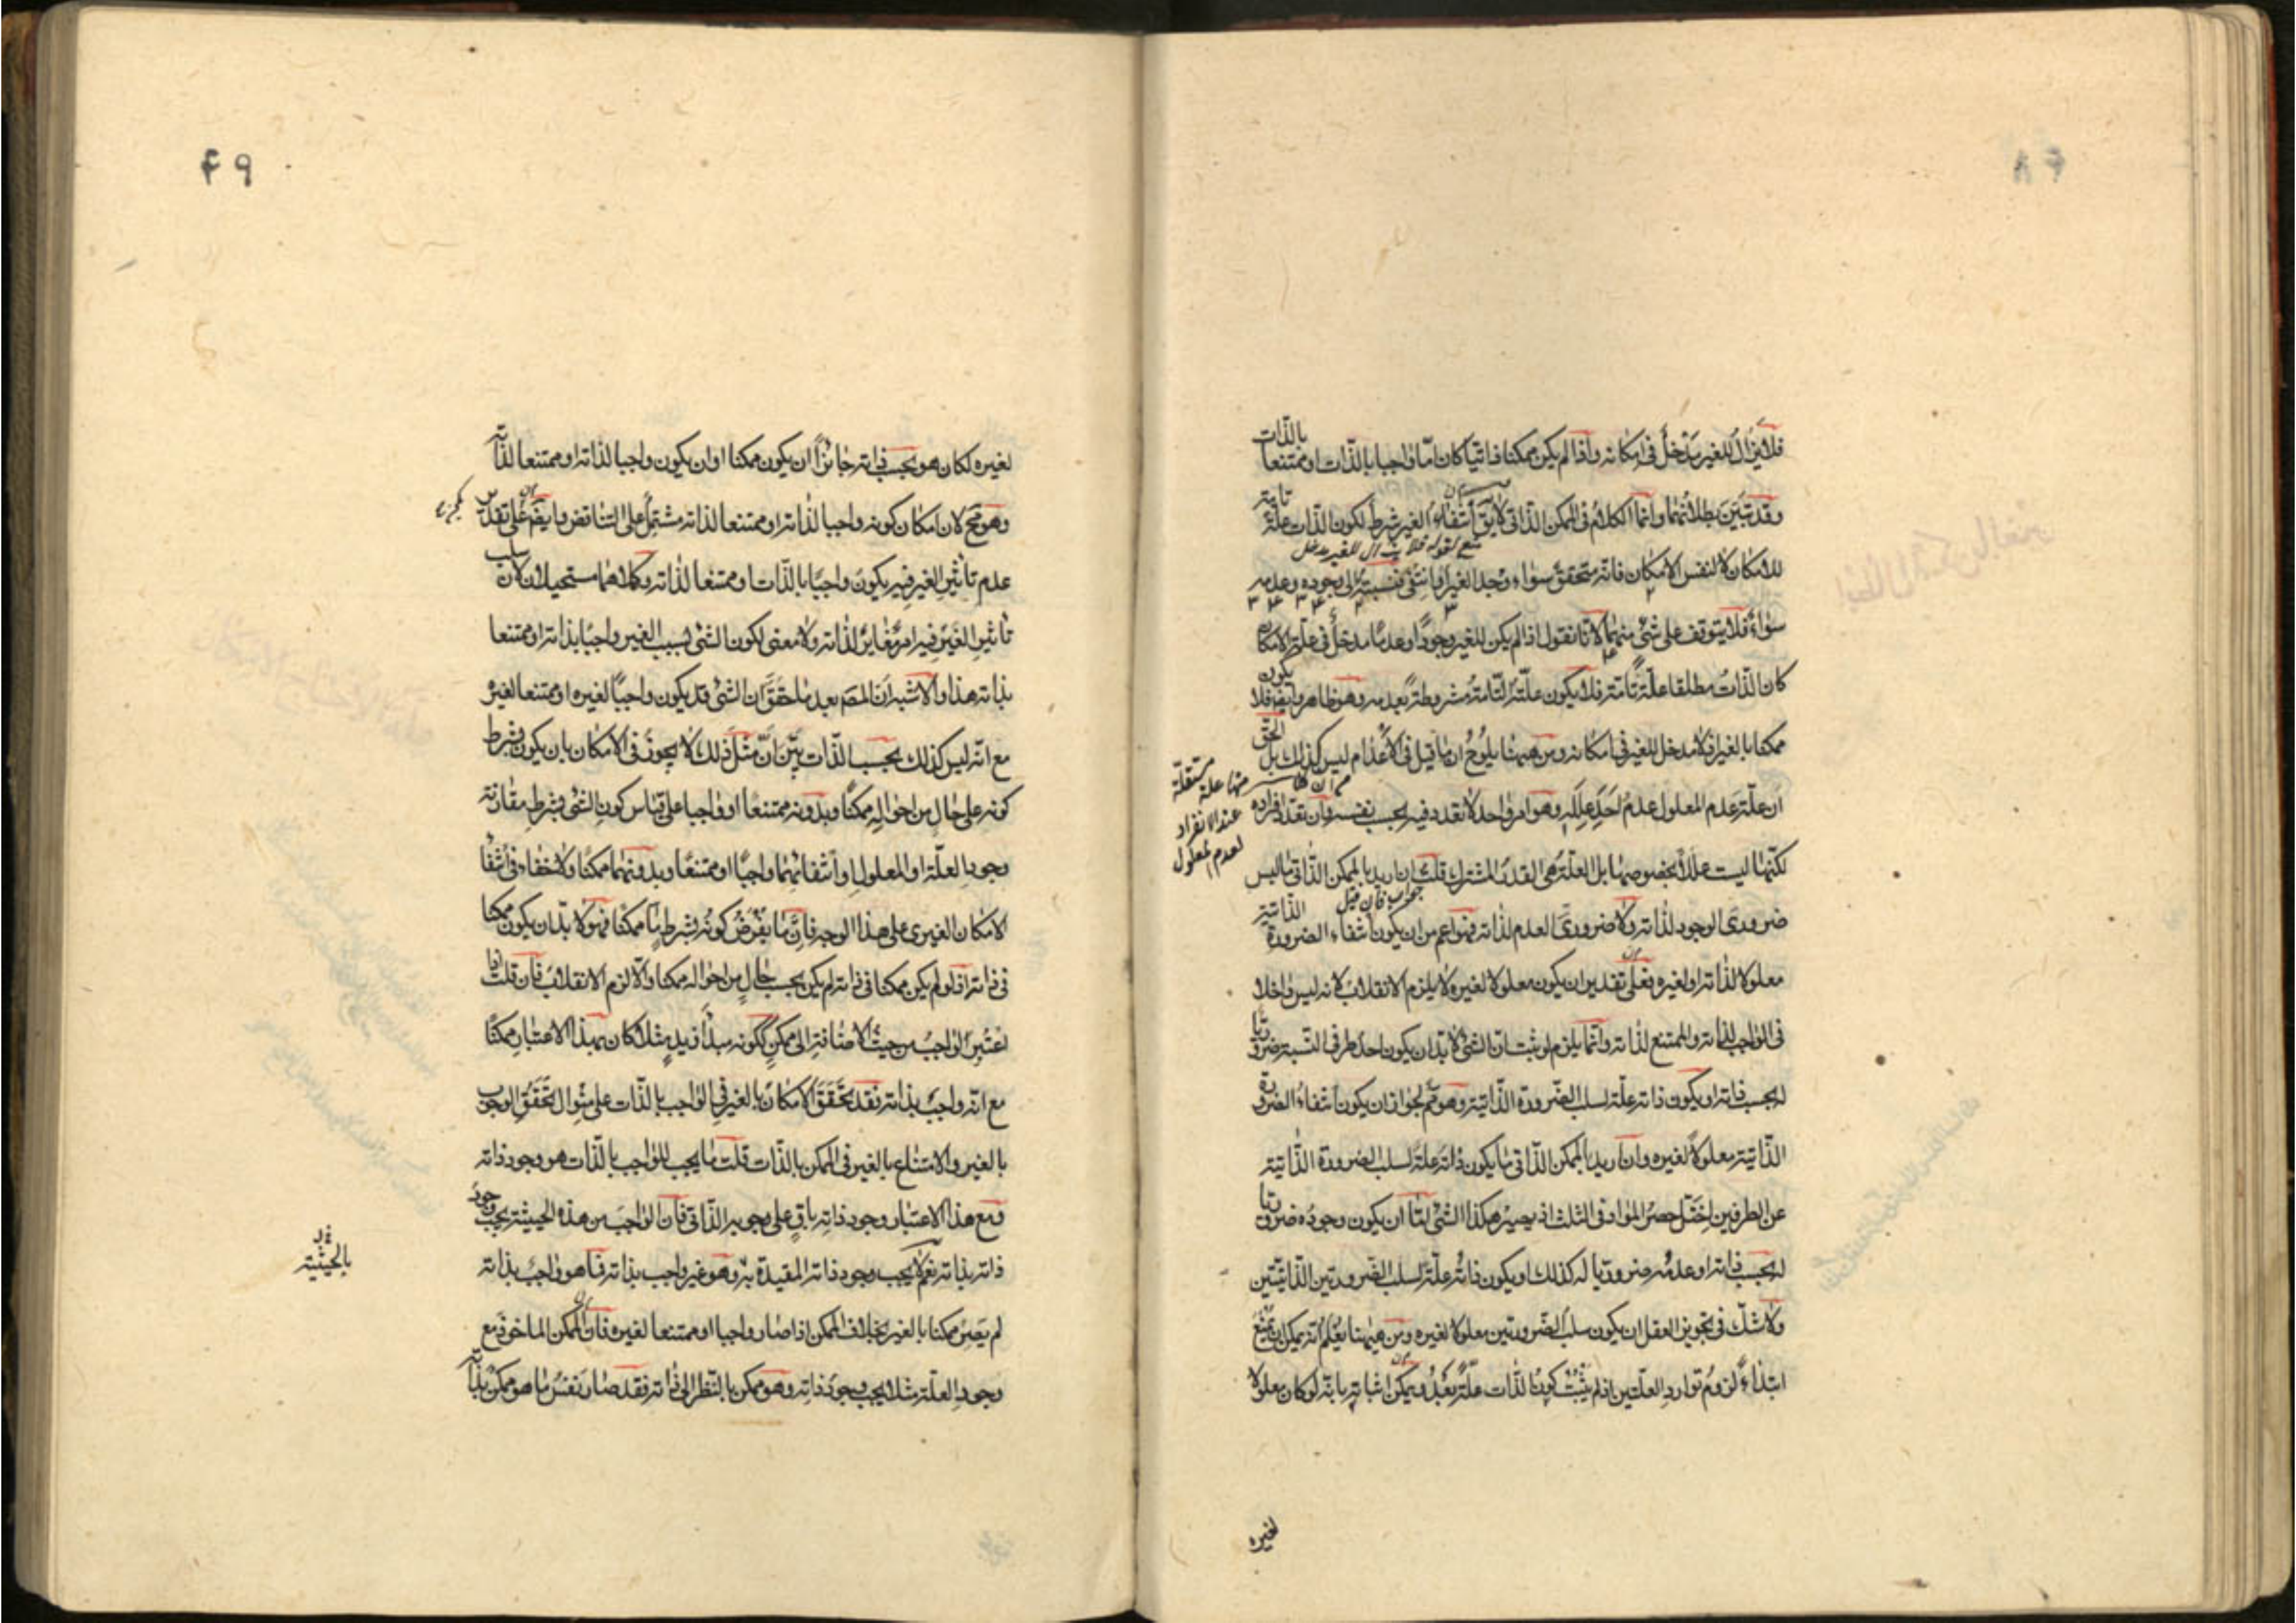 ٤٨
فلا يزال للغير مدخل في امكانه واذا لم يكن ممكنا ذاتيا كان اما واجبا بالذات او ممتنعا بالذات
وقد تبين بطلانهما وانما الكلام في الممكن الذاتي لا يق انتفاء الغير شرط لكون الذات علة تامة
منع لقوله فلا يزال للغير مدخل
للامكان لا لنفس الامكان فانه متحقق سواء وجد الغير او انتفى فنسبته الى وجوده وعدمه
سواء فلا يتوقف على شئ منهما لانا نقول اذا لم يكن للغير وجودا وعدما مدخل في علة الامكان
كان الذات مطلقا علة تامة فلا يكون علته التامة مشروطة بعدمه وهو ظاهر وايضا فلا يكون
ممكنا بالغير اذ لا مدخل للغير في امكانه ومن ههنا يلوح ان ما قيل في الاعدام ليس كذلك بل الحق
ان علة عدم المعلول عدم احد علله وهو امر واحد لا تعدد فيه بحسب نفسه وان تعدد افراده
منها علة مستقلة
عند الانفراد
لعدم المعلول
لكنها ليست عللا بخصوصها بل العلة هي القدر المشترك قلت ان اريد بالممكن الذاتي ما ليس
جواب فان قيل
ضروري الوجود لذاته ولا ضروري العدم لذاته فهو اعم من ان يكون انتفاء الضرورة الذاتية
معلولا لذاته او لغيره فعلى تقدير ان يكون معلولا لغيره لا يلزم الانقلاب لانه ليس داخلا
في الواجب لذاته والممتنع لذاته وانما يلزم لو ثبت ان الشئ لا بد ان يكون احد طرفي النسبة ضروريا
له بحسب ذاته او يكون ذاته علة لسلب الضرورة الذاتية وهو مم لجواز ان يكون انتفاء الضرورة
الذاتية معلولا لغيره وان اريد بالممكن الذاتي ما يكون ذاته علة لسلب الضرورة الذاتية
عن الطرفين اختل حصر المواد في الثلث اذ يصير هكذا الشئ اما ان يكون وجوده ضروريا
له بحسب ذاته او عدمه ضروريا له كذلك او يكون ذاته علة لسلب الضرورتين الذاتيتين
ولا شك في تجويز العقل ان يكون سلب الضرورتين معلولا لغيره ومن ههنا يعلم انه يمكن ان يمنع
ابتداء لزوم توارد العلتين اذ لم يثبت كون الذات علة بعد ويمكن اثباته بانه لو كان معلولا
لغيره
٤٩
لغيره لكان هو بحسب ذاته جائزا ان يكون ممكنا او ان يكون واجبا لذاته او ممتنعا لذاته
وهو مح لان امكان كونه واجبا لذاته او ممتنعا لذاته مشتمل على التناقض وايضا فعلى تقدير
عدم تاثير الغير فيه يكون واجبا بالذات او ممتنعا لذاته وكلاهما مستحيلان لان سلب
تاثير الغير فيه امر مغاير لذاته ولا معنى لكون الشئ بسبب الغير واجبا بذاته او ممتنعا
بذاته هذا والاشبه ان المصم بعد ما حقق ان الشئ قد يكون واجبا لغيره او ممتنعا لغيره
مع انه ليس كذلك بحسب الذات بين ان مثل ذلك لا يجوز في الامكان بان يكون بشرط
كونه على حال من احواله ممكنا وبدونه ممتنعا او واجبا على قياس كون الشئ بشرط مقارنته
وجود العلة او المعلول او انتفائهما واجبا او ممتنعا وبدونهما ممكنا ولا خفاء في انتفاء
الامكان الغيري على هذا الوجه فان ما يفرض كونه بشرط ما ممكنا فهو لا بد ان يكون ممكنا
في ذاته اذ لو لم يكن ممكنا في ذاته لم يكن بحسب حال من احواله ممكنا والا لزم الانقلاب فان قلت اذا
اعتبر الواجب من حيث الاضافة الى ممكن ككونه مبدأ لزيد مثلا كان بهذا الاعتبار ممكنا
مع انه واجب بذاته فقد تحقق الامكان بالغير في الواجب بالذات على منوال تحقق الوجوب
بالغير والامتناع بالغير في الممكن بالذات قلت ما يجب للواجب بالذات هو وجود ذاته
ومع هذا الاعتبار وجود ذاته باق على وجوبه الذاتي فان الواجب من هذه الحيثية يجب وجود
ذاته بذاته نعم لا يجب وجود ذاته المقيدة به وهو غير واجب بذاته فما هو واجب بذاته
بالحيثية
لم يصر ممكنا بالغير بخلاف الممكن اذا صار واجبا او ممتنعا لغيره فان الممكن الماخوذ مع
وجود العلة مثلا يجب وجود ذاته وهو ممكن بالنظر الى ذاته فقد صار نفس ما هو ممكن بذاته